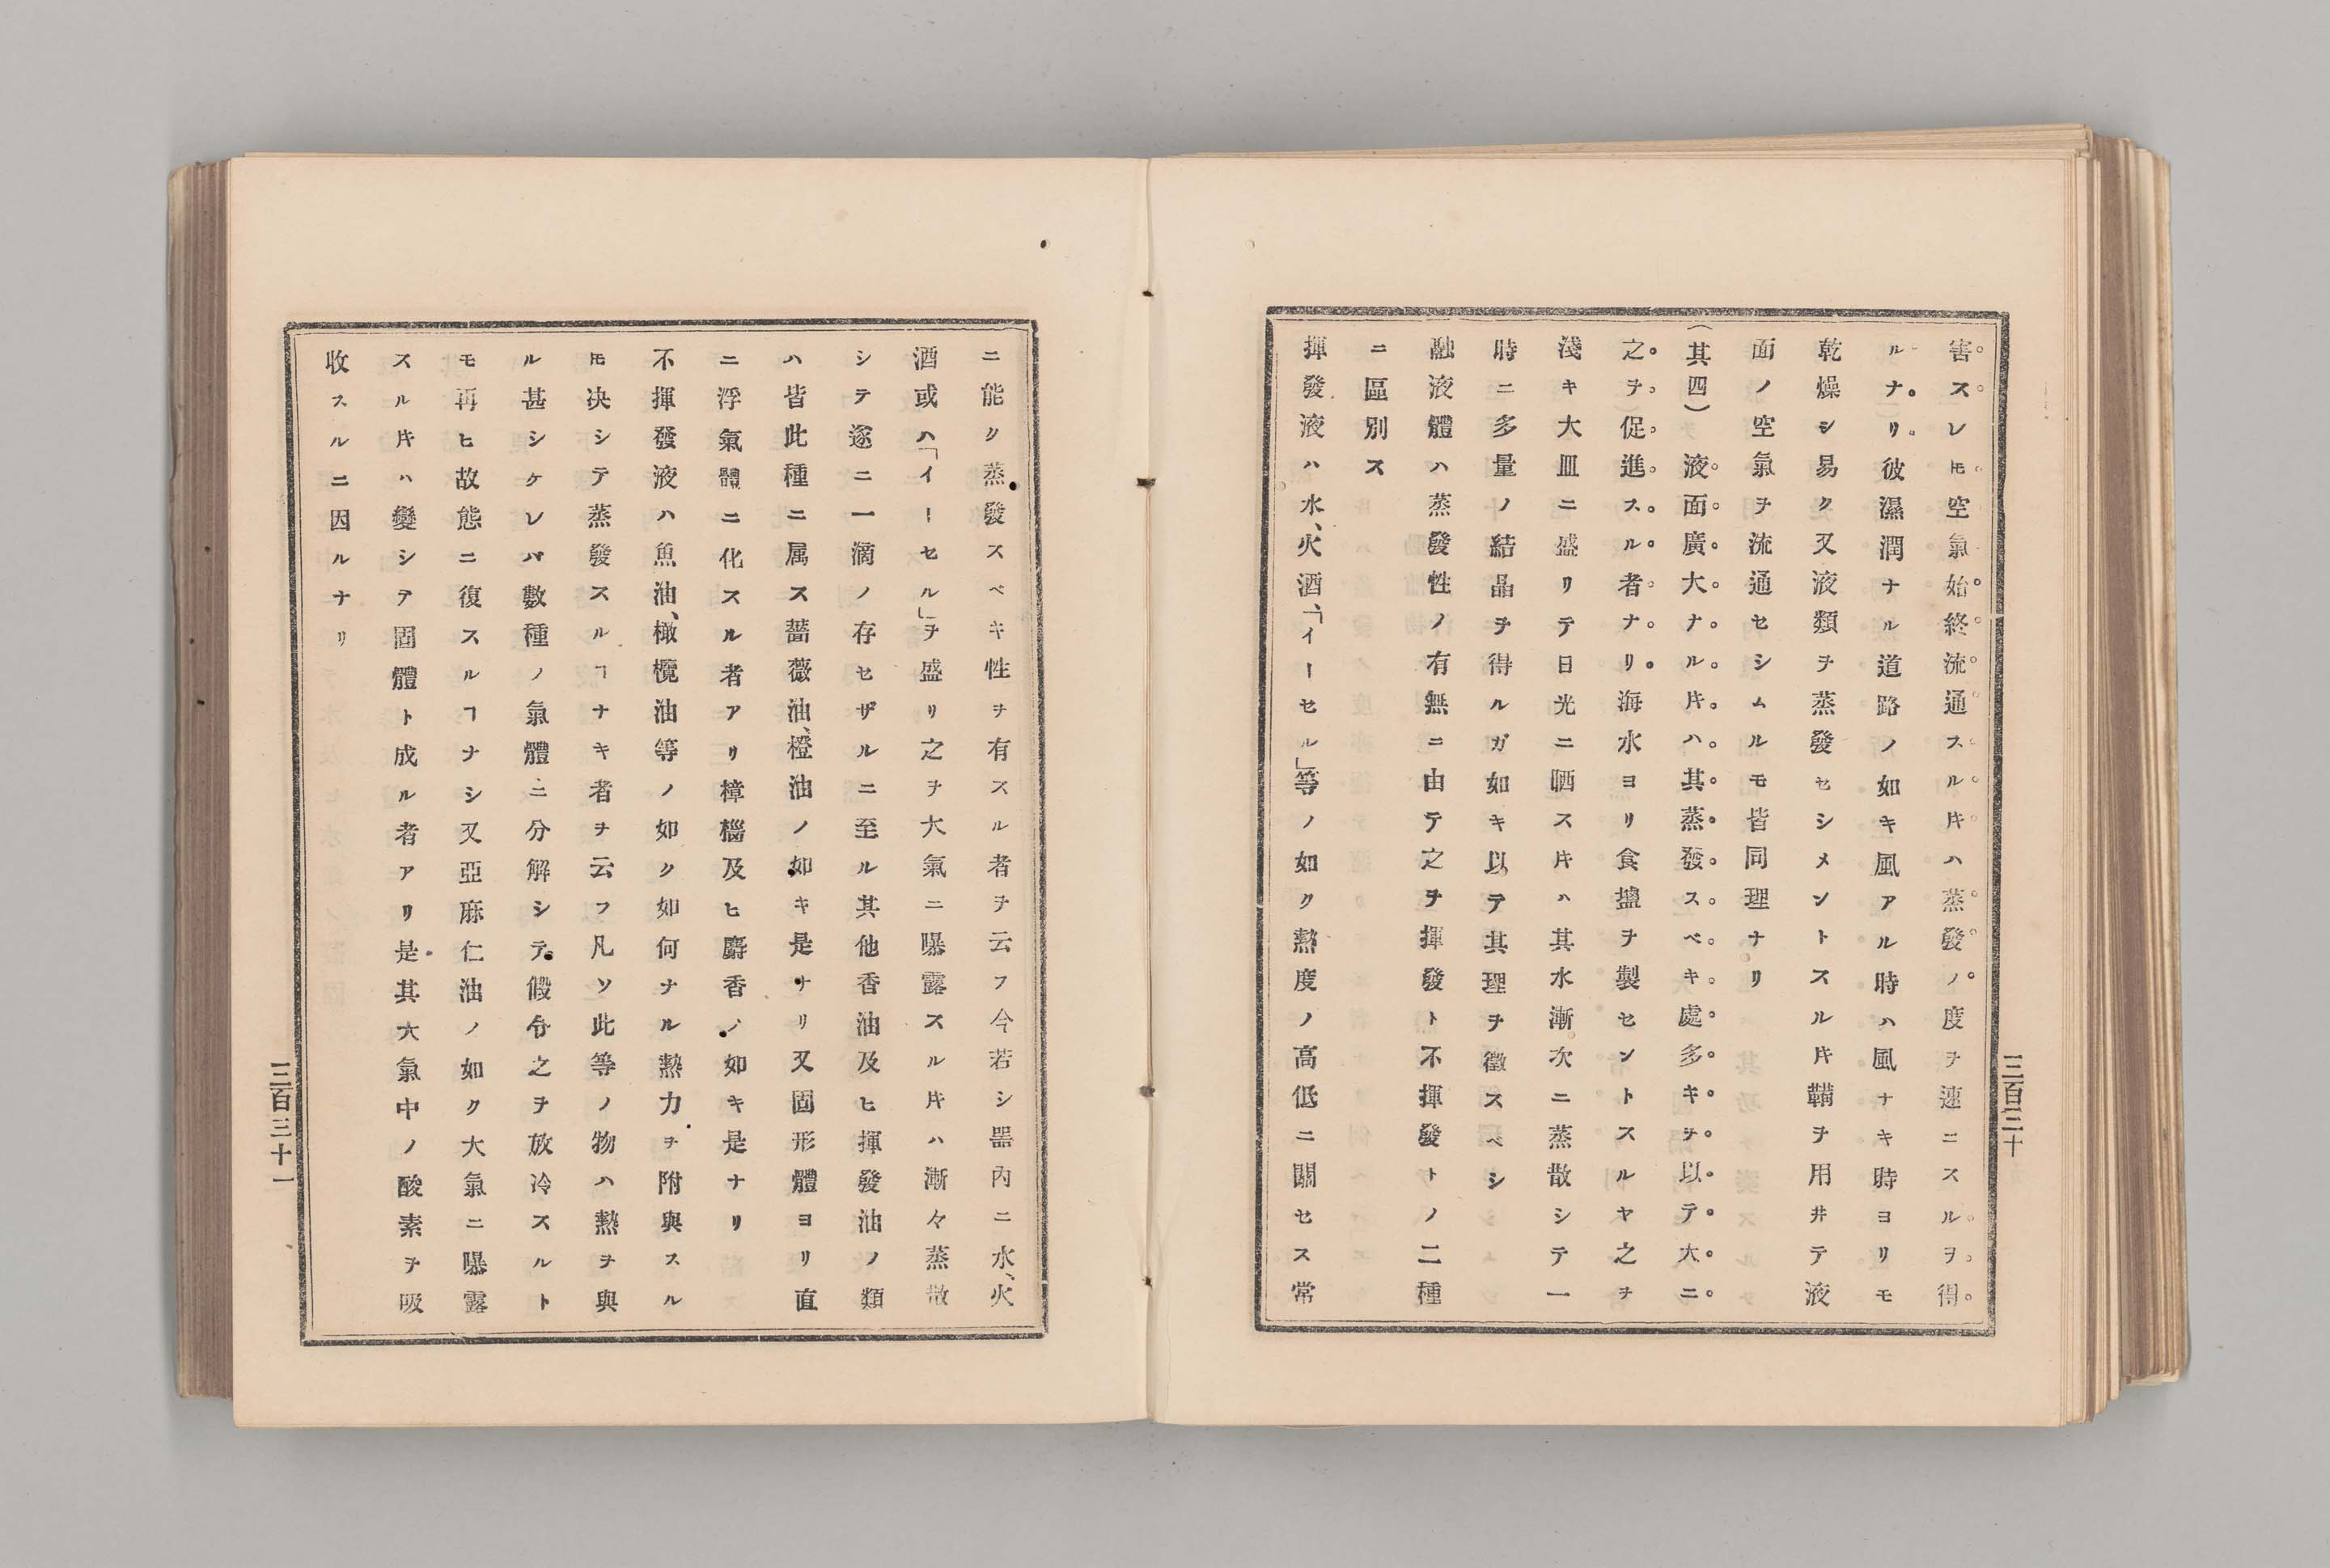 害スレ𪜈空氣始終流通スル𪜀ハ蒸發ノ度ヲ速ニスルヲ得
ルナリ彼濕潤ナル道路ノ如キ風アル時ハ風ナキ時ヨリモ
乾燥シ易ク又液類ヲ蒸發セシメントスル𪜀鞴ヲ用井テ液
面ノ空氣ヲ流通セシムルモ皆同理ナリ
(其四)液面廣大ナル𪜀ハ其蒸發スベキ處多キヲ以テ大ニ
之ヲ促進スル者ナリ海水ヨリ食鹽ヲ製セントスルヤ之ヲ
淺キ大皿ニ盛リテ日光ニ晒ス𪜀ハ其水漸次ニ蒸散シテ一
時ニ多量ノ結晶ヲ得ルガ如キ以テ其理ヲ徵スベシ
融液體ハ蒸發性ノ有無ニ由テ之ヲ揮發ト不揮發トノ二種
ニ區別ス
揮發液ハ水、火酒、「イーセル」等ノ如ク熱度ノ高低ニ關セス常
三百三十
ニ能ク蒸發スベキ性ヲ有スル者ヲ云フ今若シ器內ニ水、火
酒或ハ「イーセル」ヲ盛リ之ヲ大氣ニ曝露スル𪜀ハ漸々蒸散
シテ遂ニ一滴ノ存セザルニ至ル其他香油及ヒ揮發油ノ類
ハ皆此種ニ属ス薔薇油、橙油ノ如キ是ナリ又固形體ヨリ直
ニ浮氣體ニ化スル者アリ樟腦及ヒ麝香ノ如キ是ナリ
不揮發液ハ魚油、橄欖油等ノ如ク如何ナル熱力ヲ附與スル
𪜈决シテ蒸發スルヿナキ者ヲ云フ凡ソ此等ノ物ハ熱ヲ與
ル甚シケレバ數種ノ氣體ニ分解シテ假令之ヲ放冷スルト
モ再ヒ故態ニ復スルヿナシ又亞麻仁油ノ如ク大氣ニ曝露
スル𪜀ハ變シテ固體ト成ル者アリ是其大氣中ノ酸素ヲ吸
收スルニ因ルナリ
三百三十一